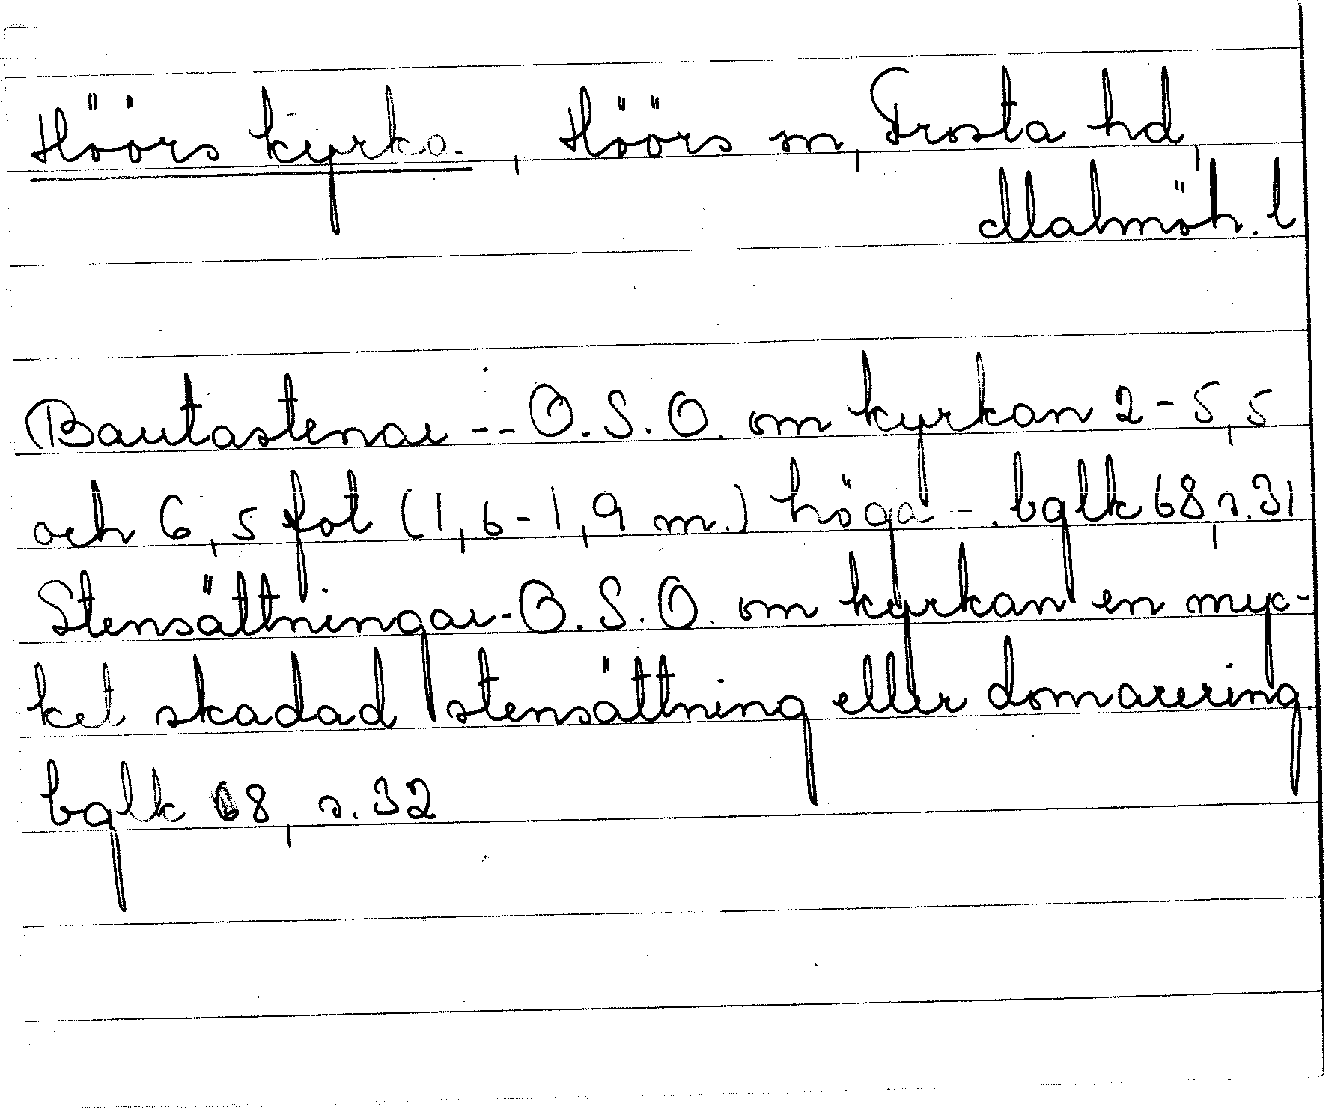 Höörs kyrka, Höörs sn, Frosta hd,
Malmöh. l
Bautastenar -- O.S.O. om kyrkan 2 - 5,5
och 6,5 fot (1,6 - 1,9 m.) höga -. bglk 68, s. 31
Stensättningar - O.S.O. om kyrkan en myc-
ket skadad stensättning eller domarering.
bglk 68, s. 32